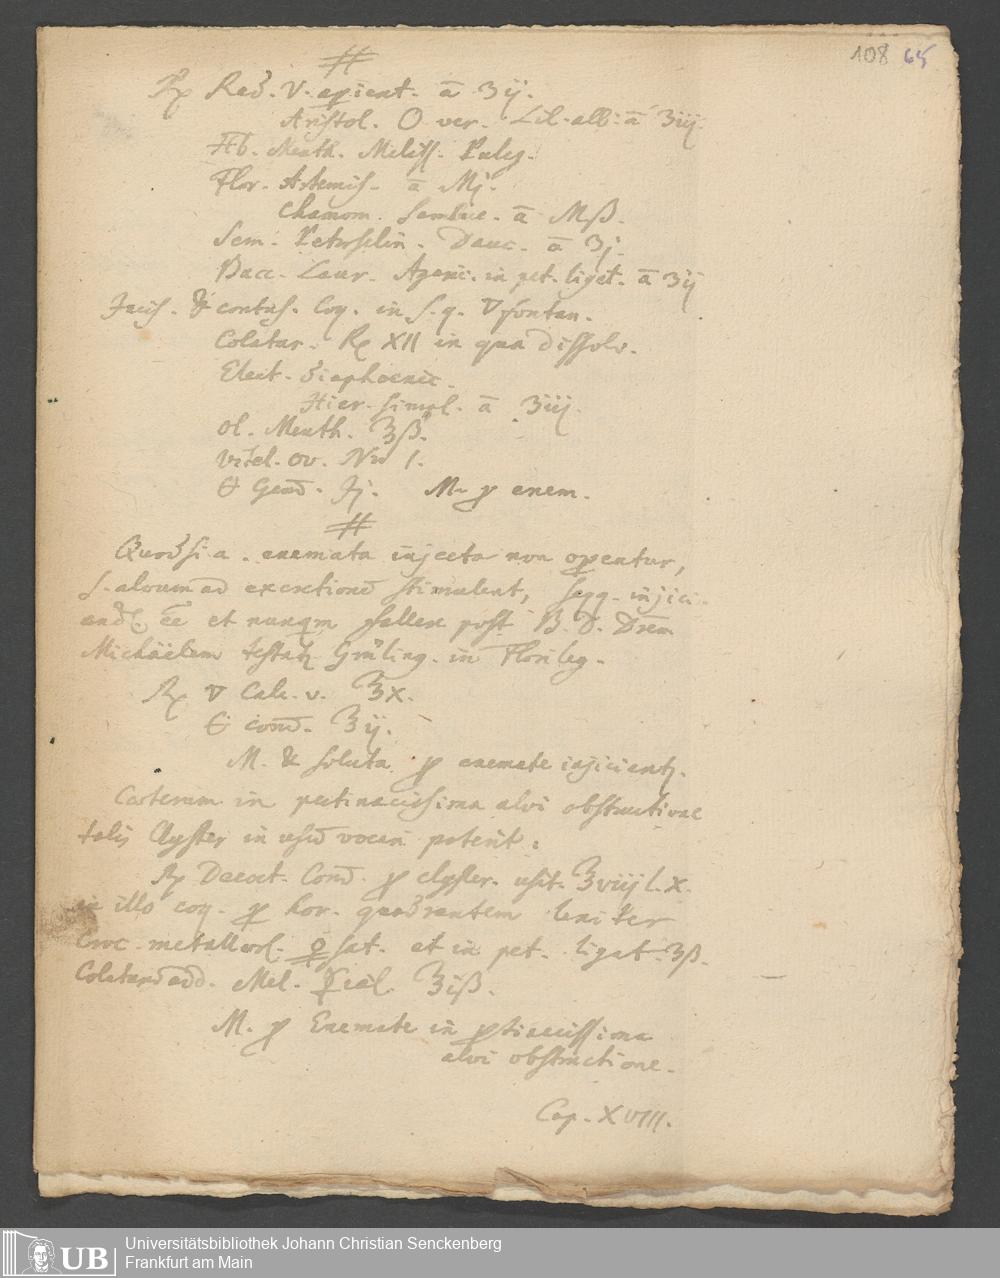 108 65
#
Rx Rad. V. aperient. ā ʒij.
Aristol. O ver. Lil. alb. ā ʒiij.
Hb. Menth. Meliss. Puleg.
Flor. Artemis. ā Mj.
Chamom. Sambuc. ā Mß.
Sem. Petroselin. Dauc. ā ʒj.
Bacc. Laur. Agaric. in pet. ligat. ā ʒij
Incis. & contus. Coq. in s. q. ▽ fontan.
Colatur. Rx XII in qua dissolv.
Elect. diaphoenic.
Hier. simpl. ā ʒiij.
Ol. Menth. ʒß.
Vitel. ov. No 1.
M. p enem.
#
Quod si a. enemata injecta non operentur,
s. alvum ad excretionē stimulent, seqq. injici-
et nunqm fallere post B. D. Drem
Michaëlem Grüling. in Florileg.
Rx ▽ Calc. v. ℥x.
com̄. ℥ij.
M. & soluta p enemate injiciant.
Caeterum in pertinacissima alvi obstructione
talis Clyster in usū vocari poterit:
Rx Decoct. Com̄. p clyster. usit. ℥viij l. X.
in illo coq. p hor. quadrantem leniter
Croc. metallor. p sat. et in pet. ligat. ℥ß.
Colatur add. Mel. ℥iß.
M. p Enemate in ptinacissima
alvi obstructione.
Cap. XVIII.
UB
Universitätsbibliothek Johann Christian Senckenberg
Frankfurt am Main